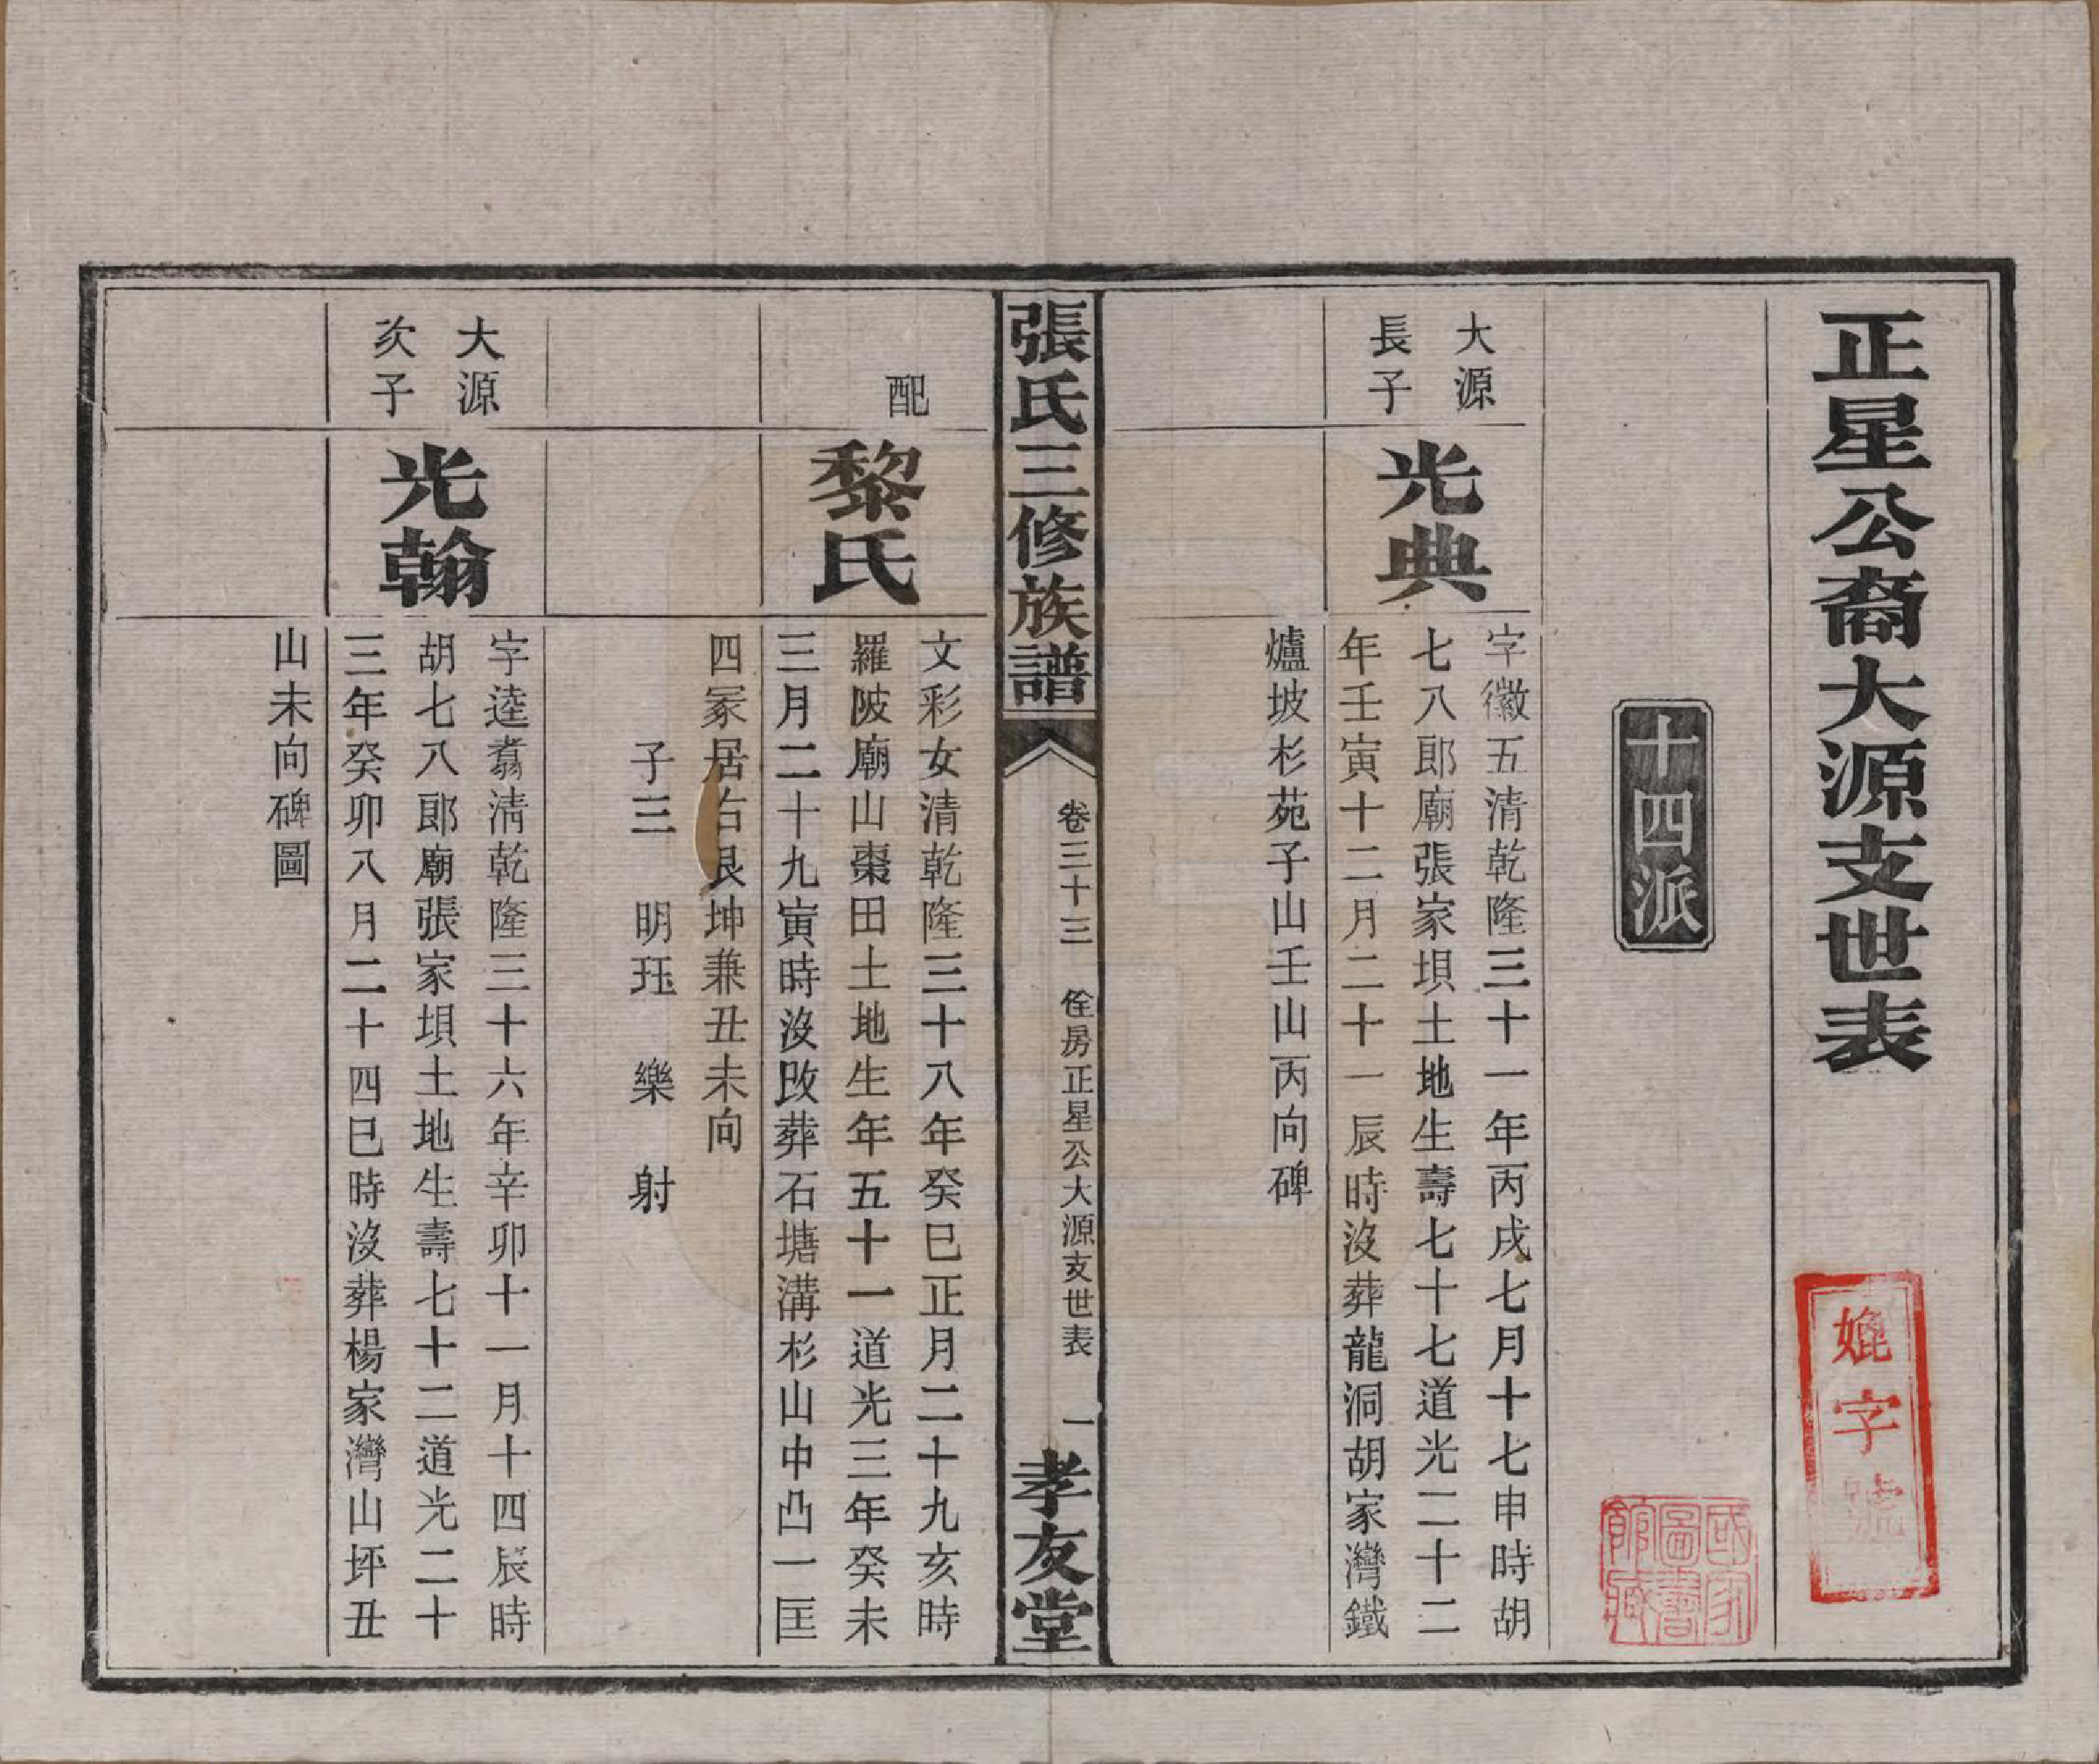 正星公裔大源支世表
媲字號
國家圖書館藏
十四派
大源
長子
光典
字徽五清乾隆三十一年丙戌七月十七申時胡
七八郎廟張家垻土地生壽七十七道光二十二
年壬寅十二月二十一辰時沒葬龍洞胡家灣鐵
爐坡杉苑子山壬山丙向碑
張氏三修族譜
卷三十三
佺房正星公大源支世表
一
孝友堂
配
黎氏
文彩女清乾隆三十八年癸巳正月二十九亥時
羅陂廟山棗田土地生年五十一道光三年癸未
三月二十九寅時沒改葬石塘溝杉山中凸一匡
四冢居右艮坤兼丑未向
子三 明珏 樂 射
大源
次子
光翰
字逵翥清乾隆三十六年辛卯十一月十四辰時
胡七八郎廟張家垻土地生壽七十二道光二十
三年癸卯八月二十四巳時沒葬楊家灣山坪丑
山未向碑圖